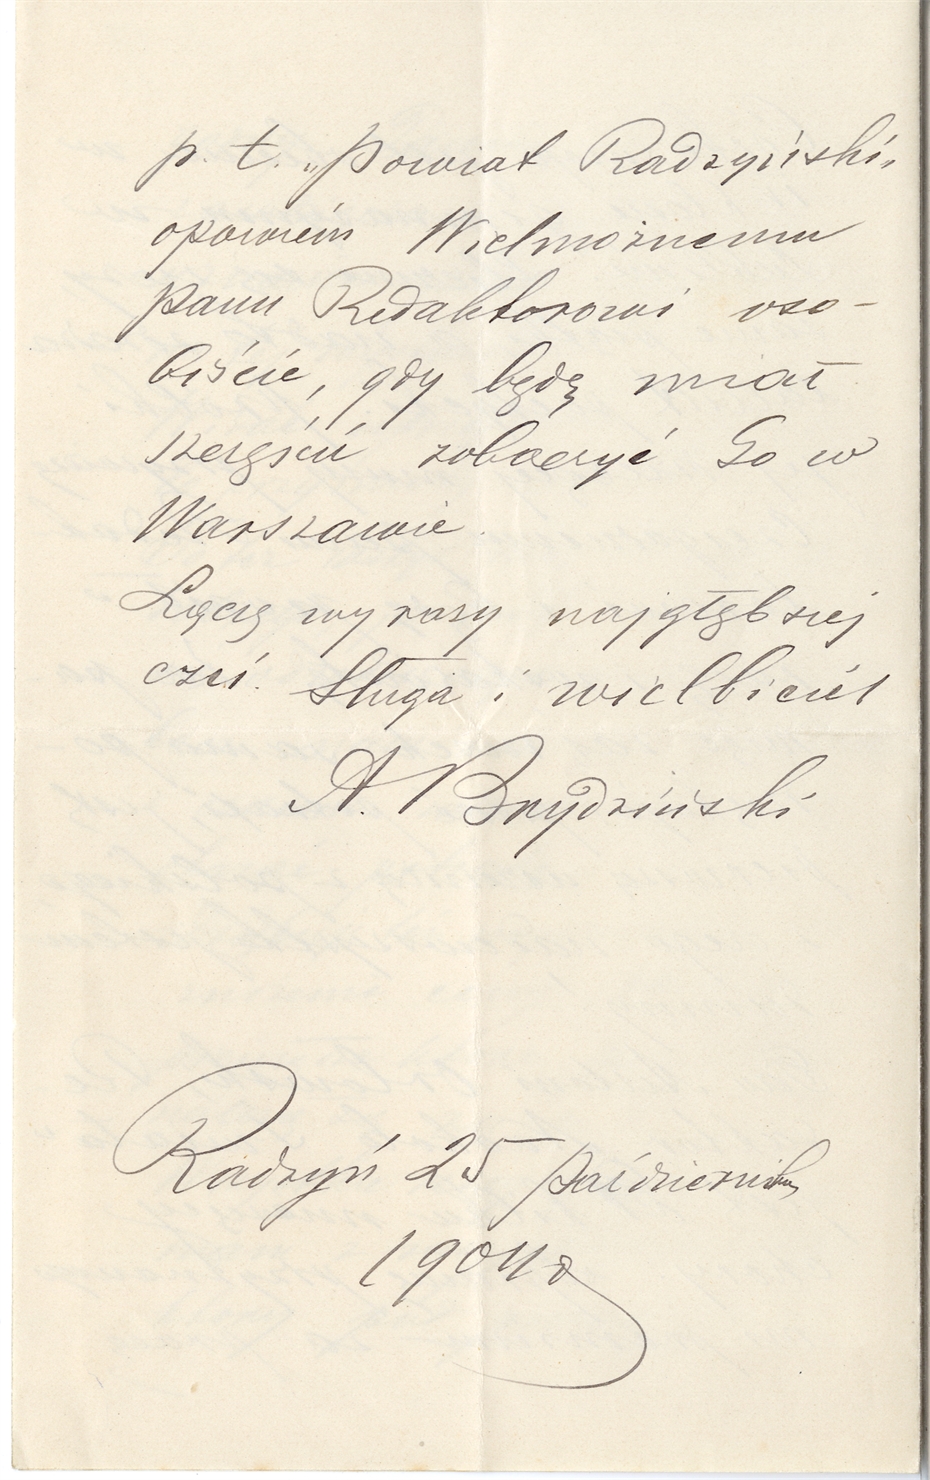 p. t. „Powiat Radzyński„
opowiem Wielmożnemu
Panu Redaktorowi oso-
biście, gdy będę miał
szczęście zobaczyć Go w
Warszawie.
Łączę wyrazy najgłębszej
czci. Sługa i wielbiciel
A. Brydziński
Radzyń 25 Października
1904 r